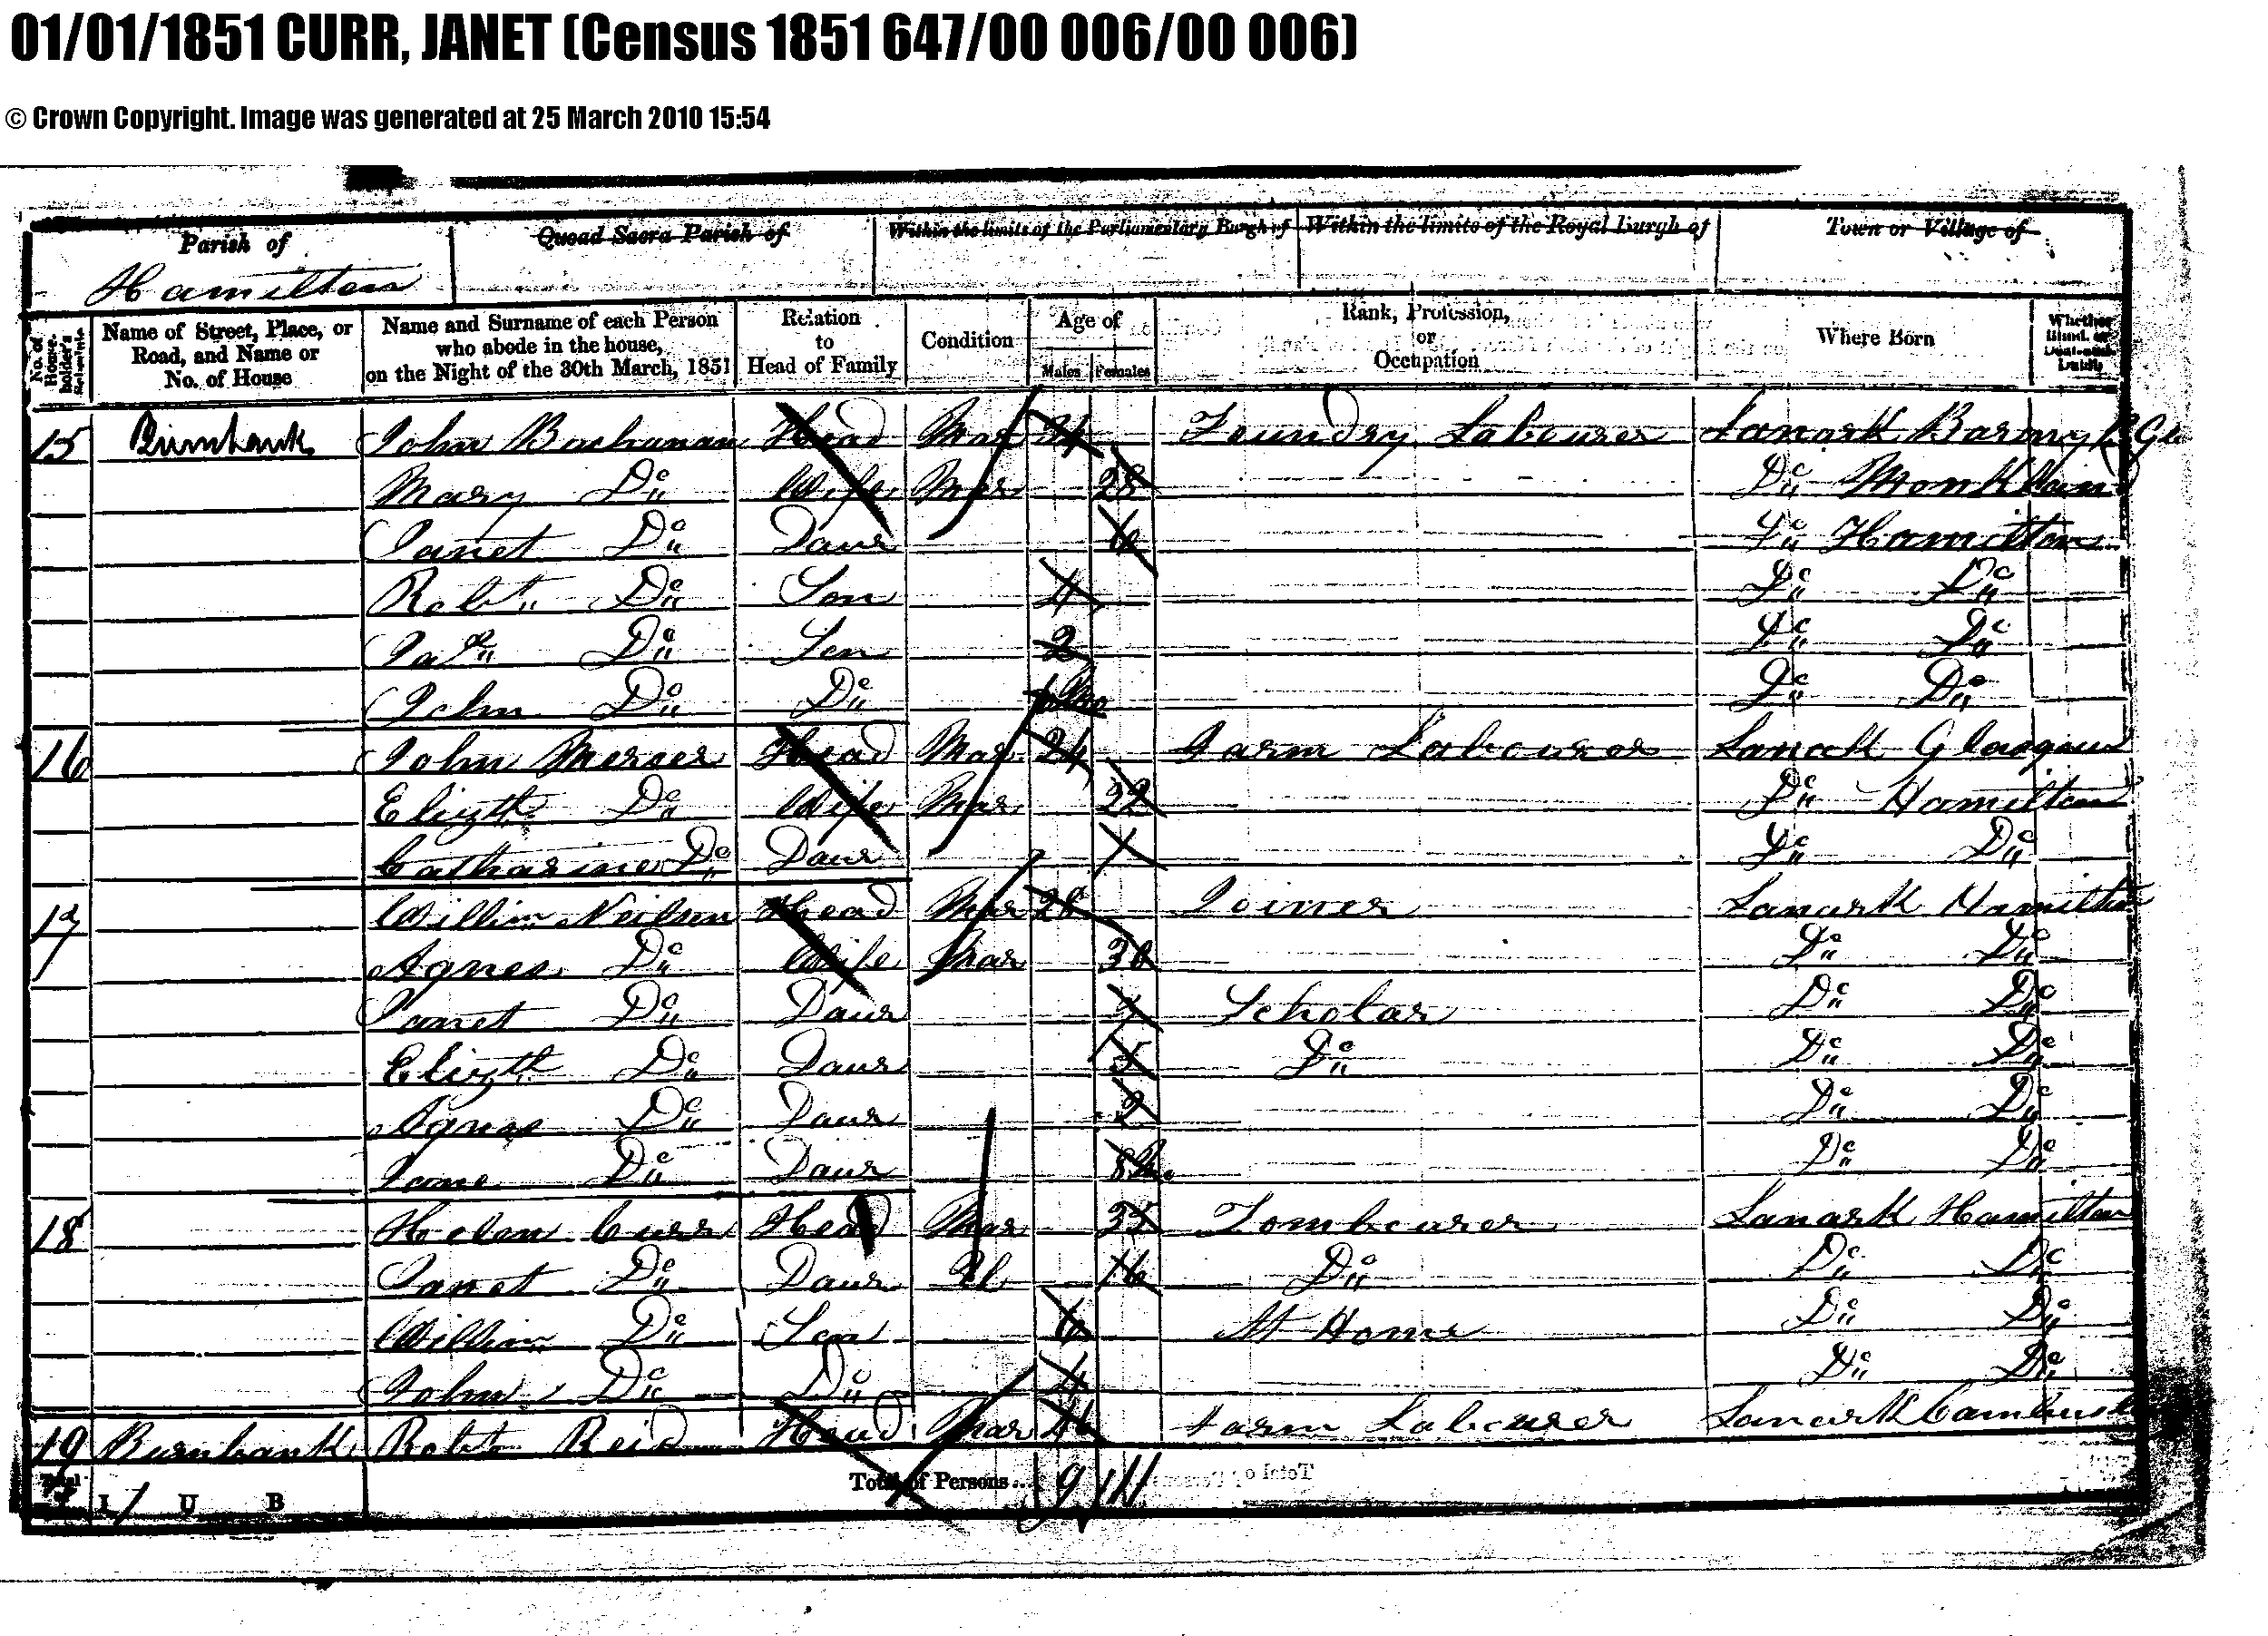 01/01/1851 CURR, JANET (Census 1851 647/00 006/00 006)
© Crown Copyright. Image was generated at 25 March 2010 15:54
Parish of Quoad Sacra Parish of Within the limits of the Parliamentary Burgh of Within the limits of the Royal Burgh of Town or Village of
Hamilton
No. of House-holder's Schedule Name of Street, Place, or Road, and Name or No. of House Name and Surname of each Person who abode in the house, on the Night of the 30th March, 1851 Relation to Head of Family Condition Age of Males Females Rank, Profession, or Occupation Where Born Whether Blind, or Deaf-and-Dumb
15 Burnbank John Buchanan Head Mar Foundry Labourer Lanark Barony
Mary Do Wife Mar 28 Do Monkland
Janet Do Daur 6 Do Hamilton
Robt Do Son 4 Do Do
Jas Do Son 2 Do Do
John Do Do Do Do
16 John Mercer Head Mar 24 Farm Labourer Lanark Glasgow
Elizth Do Wife Mar 22 Do Hamilton
Catharine Do Daur 1 Do Do
17 William Neilson Head Mar 28 Joiner Lanark Hamilton
Agnes Do Wife Mar 30 Do Do
Janet Do Daur 7 Scholar Do Do
Elizth Do Daur 5 Do Do Do
Agnes Do Daur 2 Do Do
Jane Do Daur 8 Mo Do Do
18 Helen Curr Head Mar 35 Tambourer Lanark Hamilton
Janet Do Daur U 16 Do Do Do
William Do Son 6 At Home Do Do
John Do Do 4 Do Do
19 Burnbank Robt Reid Head Mar 46 Farm Labourer Lanark
Total I / U B Total of Persons.. 9 11